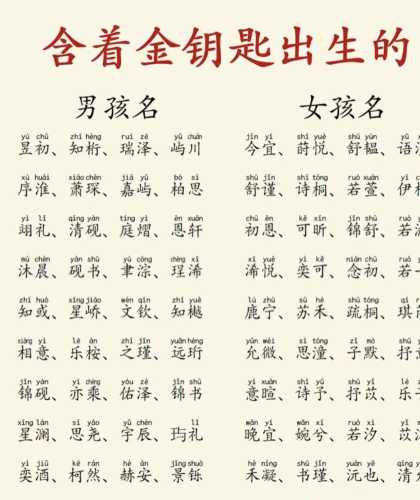 含着金钥匙出生的
男孩名 女孩名
yù chū zhī héng ruì zé yǔ chuān jīn yí shí yuè shū yùn
昱初、知桁、瑞泽、屿川 今宜、莳悦、舒韫、语
xù huái xiāo chēn jiā yǔ bó sī shū jǐn shī tóng ruò xuān yī
序淮、萧琛、嘉屿、柏思 舒谨、诗桐、若萱、伊
yì lǐ qīng yàn tíng yì ēn xuān chū ēn kě xīn jǐn shū ruò
翊礼、清砚、庭熠、恩轩 初恩、可昕、锦舒、若
mù chén yàn shū yù cóng chéng xī xī yuè yì kě niàn chū ruò
沐晨、砚书、聿淙、珵浠 浠悦、奕可、念初、若
zhī huò xīng jiāo wén qīn zhī yuè lù zhù sū hé shū tóng qí
知或、星峤、文钦、知樾 鹿宁、苏禾、疏桐、琪
xiàng yì lè ān zhī jǐn yuǎn héng yǔn wēi sī tóng zǐ mò shū
相意、乐桉、之瑾、远珩 允微、思潼、子默、抒
jǐn yàn yì chéng yòu zé jǐn shū yì xuān shī yǔ shū yǐ lè
锦砚、亦乘、佑泽、锦书 意暄、诗予、抒苡、乐
xīng lán sī yáo yǔ chén lǐ wǎn yí wǎn xī ruò xī yǐ
星澜、思尧、宇辰、玙礼 晚宜、婉兮、若汐、苡
yì jiǔ kē rán hè ān jǐng shuò hé níng shū jǐn yuán yě qīng
奕酒、柯然、赫安、景铄 禾凝、书瑾、沅也、清